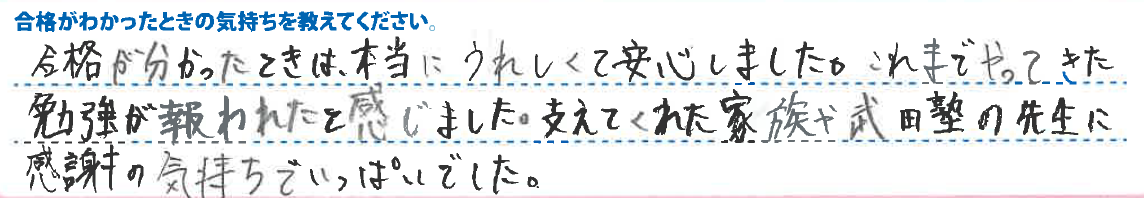 合格がわかったときの気持ちを教えてください。
合格が分かったときは、本当にうれしくて安心しました。これまでやってきた
勉強が報われたと感じました。支えてくれた家族や武田塾の先生に
感謝の気持ちでいっぱいでした。